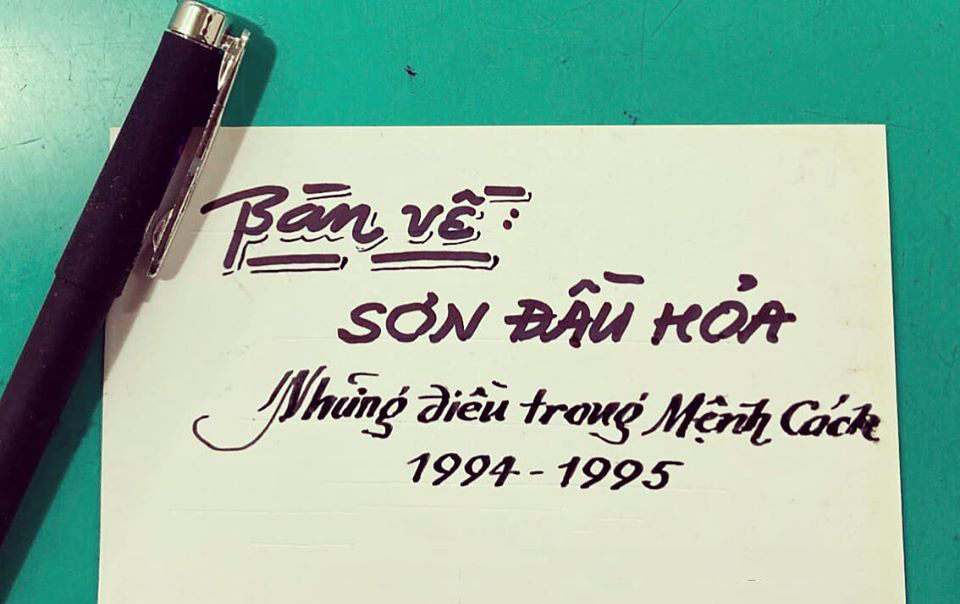 Bàn về:
SƠN ĐẦU HỎA
Những điều trong Mệnh Cách
1994 - 1995